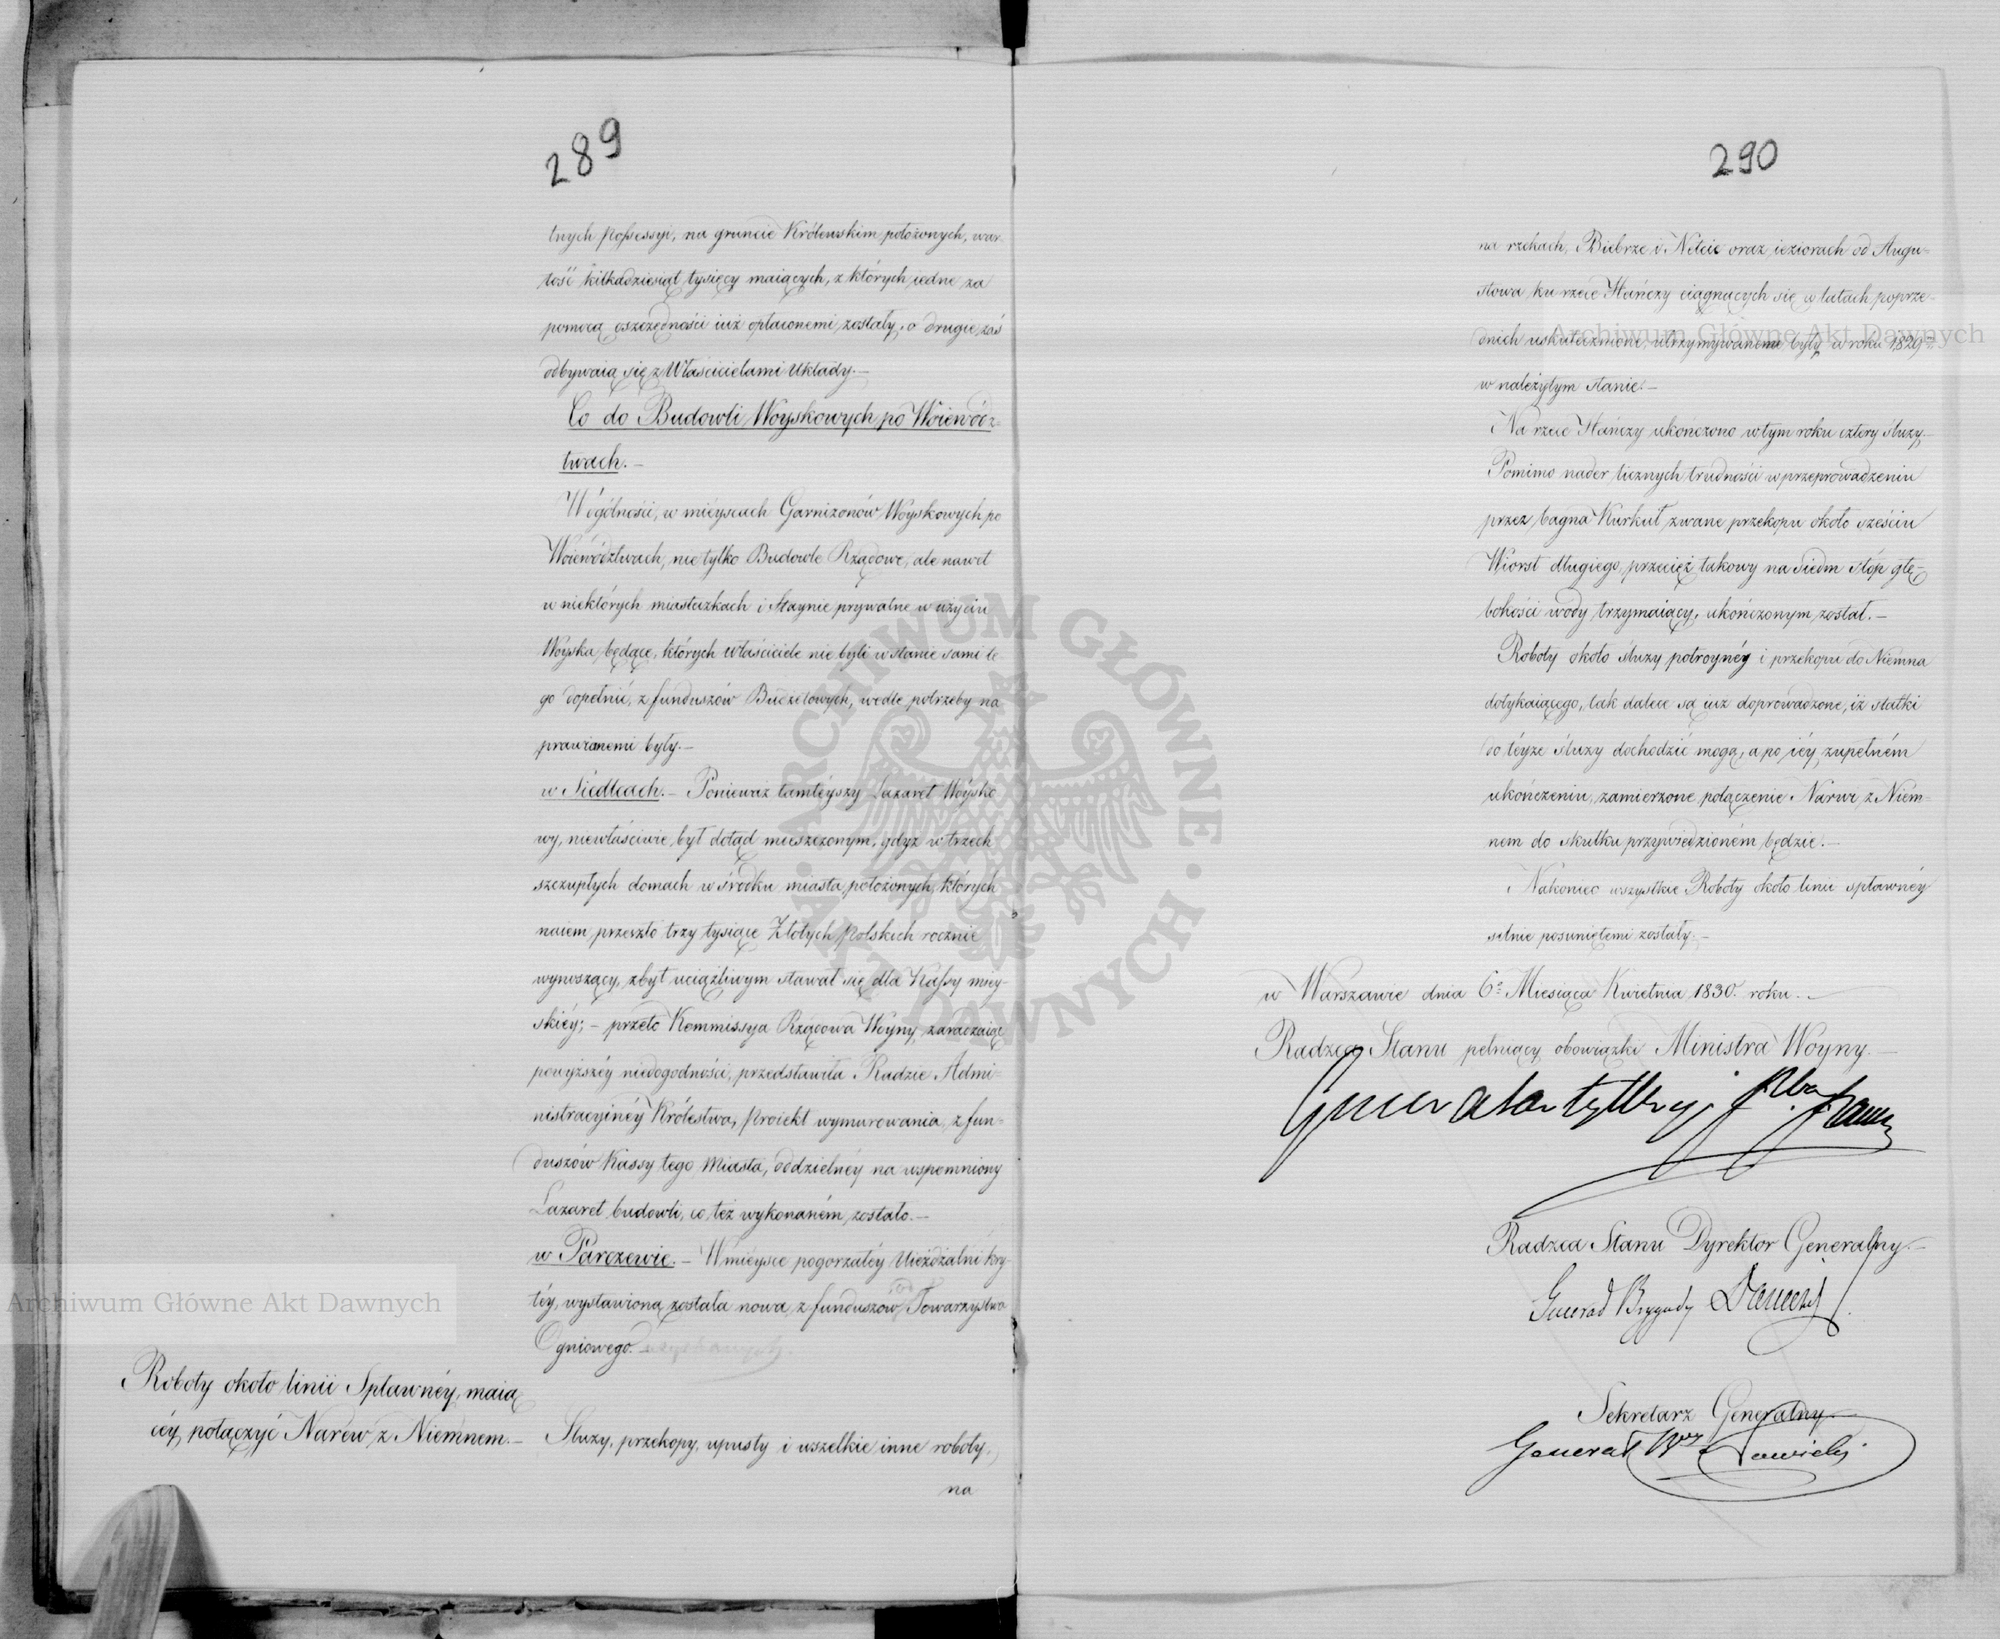 289
tnych possessyi, na gruncie Królewskim położonych, war-
tość kilkadziesiąt tysięcy maiących, z których iedne za
pomocą oszczędności iuż opłaconemi zostały, o drugie zaś
odbywaią się z Właścicielami Układy.—
Co do Budowli Woyskowych po Woiewódz-
twach.—
W ogólności, w mieyscach Garnizonów Woyskowych po
Woiewództwach, nie tylko Budowle Rządowe, ale nawet
w niektórych miasteczkach i Staynie prywatne w użyciu
Woyska będące, których właściciele nie byli w stanie sami te
go dopełnić, z funduszów Budżetowych, wedle potrzeby na
prawionemi były.—
w Siedlcach.— Ponieważ tamteyszy Lazaret Woysko
wy, niewłaściwie był dotąd mieszczonym, gdyż w trzech
szczupłych domach w środku miasta położonych, których
naiem przeszło trzy tysiące Złotych Polskich rocznie
wynoszący, zbyt uciążliwym stawał się dla Kassy miey-
skiéy;— przeto Kommissya Rządowa Woyny, zaradzaiąc
powyższéy niedogodności, przedstawiła Radzie Admi-
nistracyinéy Królestwa, proiekt wymurowania, z fun-
duszów Kassy tego Miasta, oddzielnéy na wspomniony
Lazaret budowli, co też wykonaném zostało.—
w Parczewie.— W mieysce pogorzałéy Uieżdżalni kry-
téy, wystawioną została nowa, z funduszów od Towarzystwa
Ogniowego uzyskanych.
Roboty około linii Spławnéy, maią
céy połączyć Narew z Niemnem.—
Śluzy, przekopy, upusty i wszelkie inne roboty,
na
290
na rzekach, Biebrze i Netcie oraz ieziorach od Augu-
stowa ku rzece Hańczy ciągnących się w latach poprze-
dnich uskutecznione, utrzymywanemi były w roku 1829
w należytym stanie.—
Na rzece Hańczy ukończono w tym roku cztery śluzy.—
Pomimo nader licznych trudności w przeprowadzeniu
przez bagna Kurkuł zwane przekopu około sześciu
Wiorst długiego, przecież takowy na siedm stóp głę-
bokości wody trzymaiący, ukończonym został.—
Roboty około śluzy potroynéy i przekopu do Niemna
dotykaiącego, tak dalece są iuż doprowadzone, iż statki
do téyże śluzy dochodzić mogą, a po iéy zupełném
ukończeniu, zamierzone połączenie Narwi z Niem-
nem do skutku przywiedzioném będzie.—
Nakoniec wszystkie Roboty około linii spławnéy
silnie posuniętemi zostały.—
w Warszawie dnia 6º Miesiąca Kwietnia 1830. roku.—
Radzca Stanu pełniący obowiązki Ministra Woyny.—
Generał Artylleryi
Radzca Stanu Dyrektor Generalny.—
Generał Brygady
Sekretarz Generalny
Generał
Archiwum Główne Akt Dawnych
Archiwum Główne Akt Dawnych
ARCHIWUM GŁÓWNE · AKT DAWNYCH ·